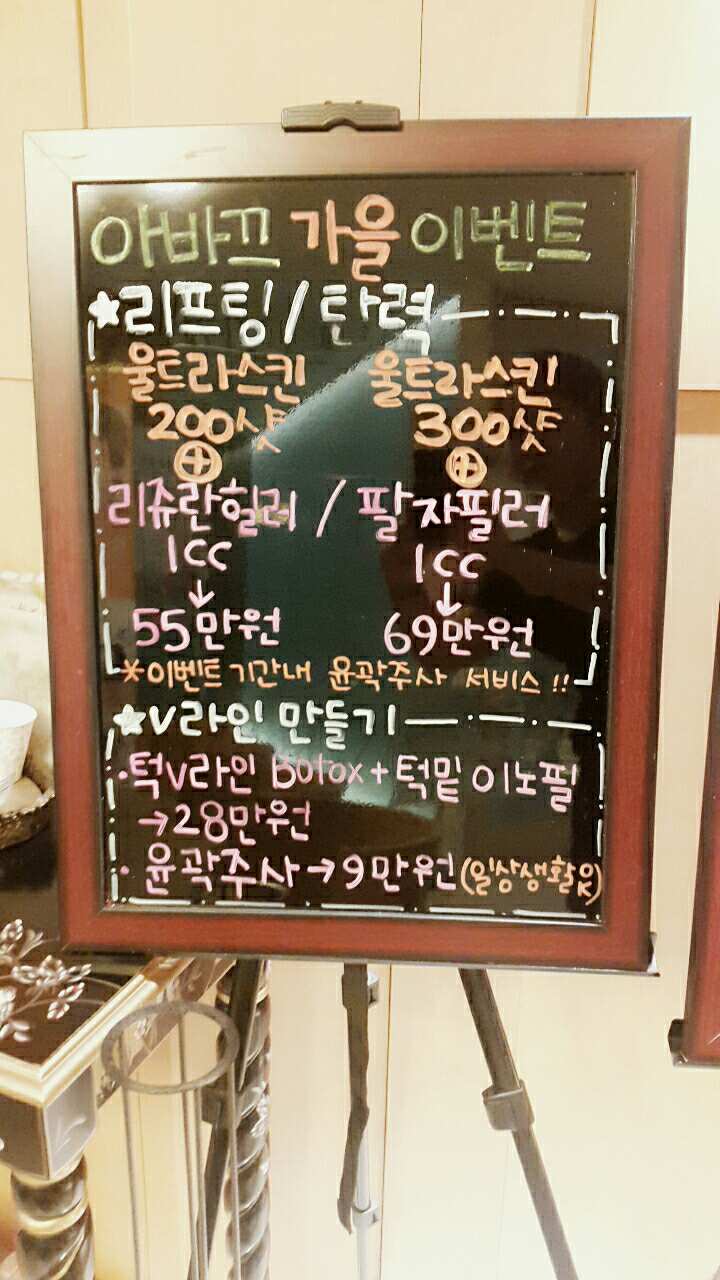 아바끄 가을 이벤트
★리프팅/탄력
울트라스킨 울트라스킨
200샷 300샷
⊕ ⊕
리쥬란힐러 / 팔자필러
1CC 1CC
↓ ↓
55만원 69만원
*이벤트 기간내 윤곽주사 서비스!!
★V라인 만들기
·턱V라인 Botox+턱밑 이노필
→28만원
·윤곽주사→9만원(일상생활O.K)